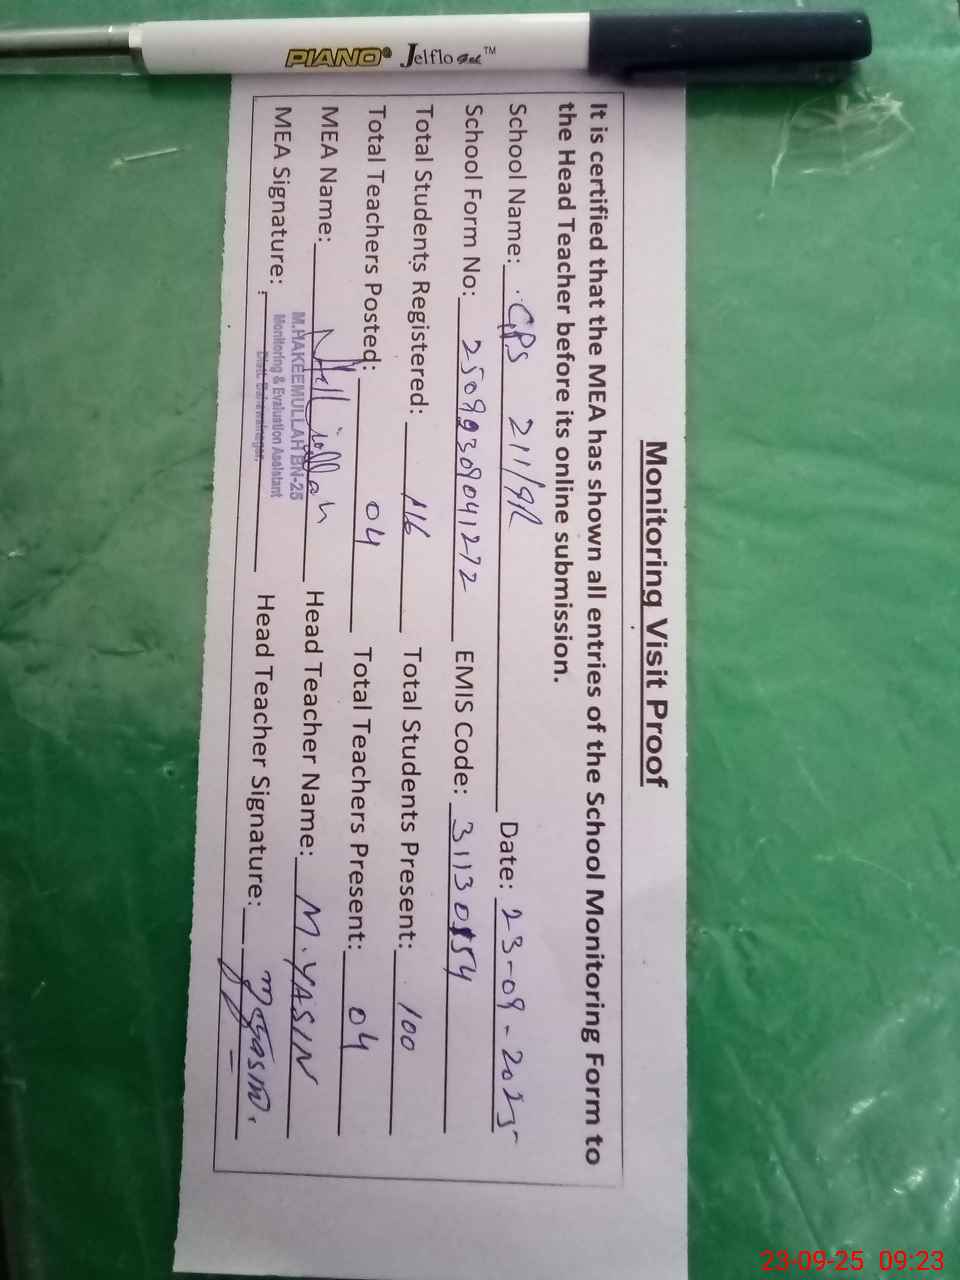 PIANO® Jelflo Gel™
Monitoring Visit Proof
It is certified that the MEA has shown all entries of the School Monitoring Form to
the Head Teacher before its online submission.
School Name: GPS 211/9R Date: 23-09-2025
School Form No: EMIS Code: 31130154
Total Students Registered: 116 Total Students Present: 100
Total Teachers Posted: 04 Total Teachers Present: 04
MEA Name: Head Teacher Name: M. YASIN
M.HAKEEMULLAH BN-25
MEA Signature: Head Teacher Signature: M Yasin
Monitoring & Evaluation Assistant
Distt. Bahawalnagar.
23-09-25 09:23